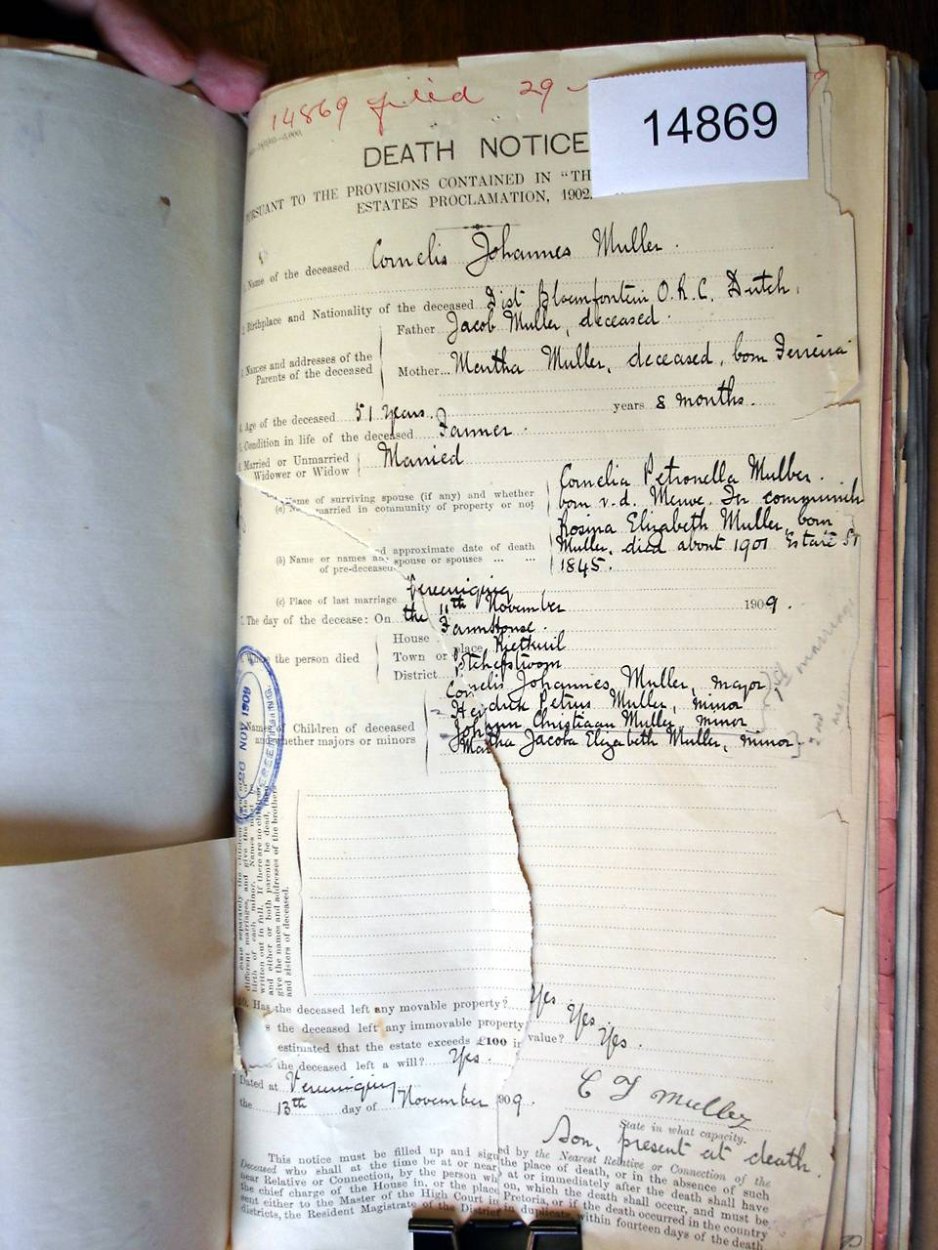 14869 filed 29
14869
DEATH NOTICE
PURSUANT TO THE PROVISIONS CONTAINED IN "TH
ESTATES PROCLAMATION, 1902.
Name of the deceased Cornelis Johannes Muller.
Birthplace and Nationality of the deceased Dist Bloemfontein O.R.C. Dutch.
Names and addresses of the Parents of the deceased
Father Jacob Muller, deceased.
Mother... Martha Muller, deceased, born Ferreira
Age of the deceased 51 years. years 8 months.
Condition in life of the deceased Farmer.
Married or Unmarried Widower or Widow Married
(a) Name of surviving spouse (if any) and whether married in community of property or not
Cornelia Petronella Muller.
born v.d. Merwe. In
(b) Name or names and approximate date of death of pre-deceased spouse or spouses ... ...
Rosina Elizabeth Muller, born
Muller, died about 1901 Estate
1845.
(c) Place of last marriage Vereeniging
The day of the decease: On the 11th November 1909.
Where the person died
House Farmhouse.
Town or place Rietkuil
District Potchefstroom
Names of Children of deceased and whether majors or minors
Cornelis Johannes Muller, major
Hendrik Petrus Muller, minor
Johann Christiaan Muller minor
Martha Jacoba Elizabeth Muller, minor.
20 NOV 1909
state separately the children of
different marriages, and give the date of
birth of each minor. Names must be
written out in full. If there are no children
and either or both parents be dead, then
give the names and addresses of the brothers
and sisters of deceased.
10. Has the deceased left any movable property? Yes
s the deceased left any immovable property Yes
estimated that the estate exceeds £100 in value? Yes.
the deceased left a will? Yes.
Dated at Vereeniging
the 13th day of November 1909.
C J Muller
State in what capacity.
Son, present at death.
This notice must be filled up and signed by the Nearest Relative or Connection of the
Deceased who shall at the time be at or near the place of death, or in the absence of such
near Relative or Connection, by the person who at or immediately after the death shall have
the chief charge of the House in, or the place on, which the death shall occur, and must be
sent either to the Master of the High Court in Pretoria, or if the death occurred in the country
districts, the Resident Magistrate of the District in duplicate, within fourteen days of the death